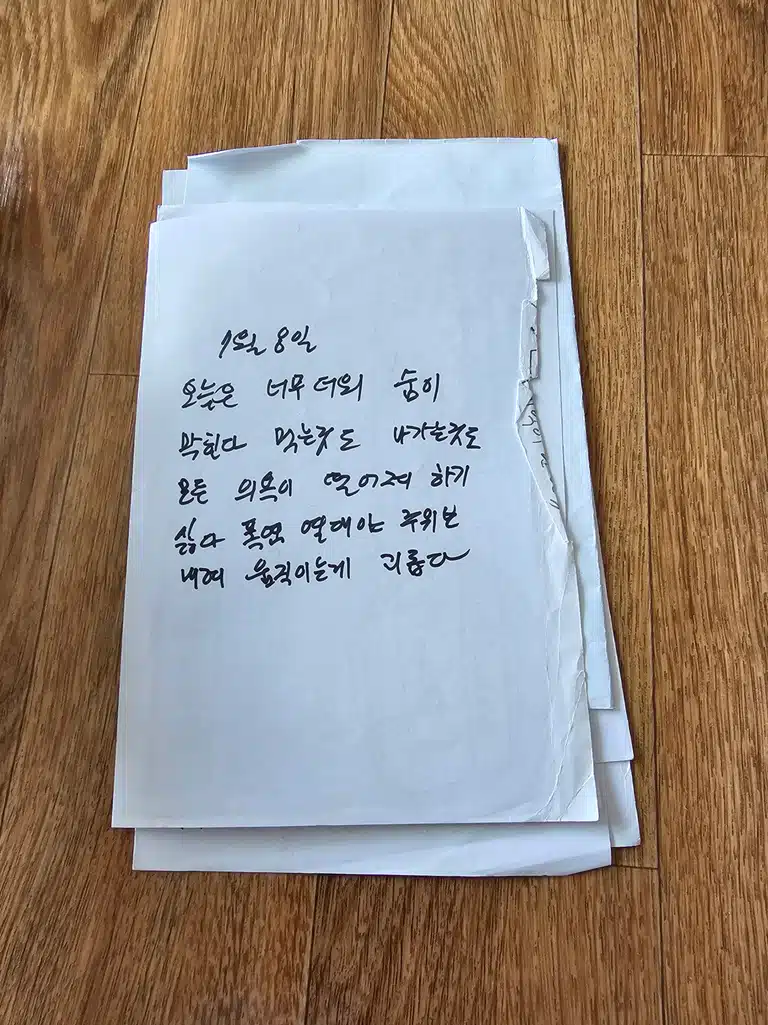 7월 8일
오늘은 너무 더워 숨이
막힌다 먹는것도 나가는것도
모든 의욕이 떨어져 하기
싫다 폭염 열대야 주위보
내려 움직이는게 괴롭다